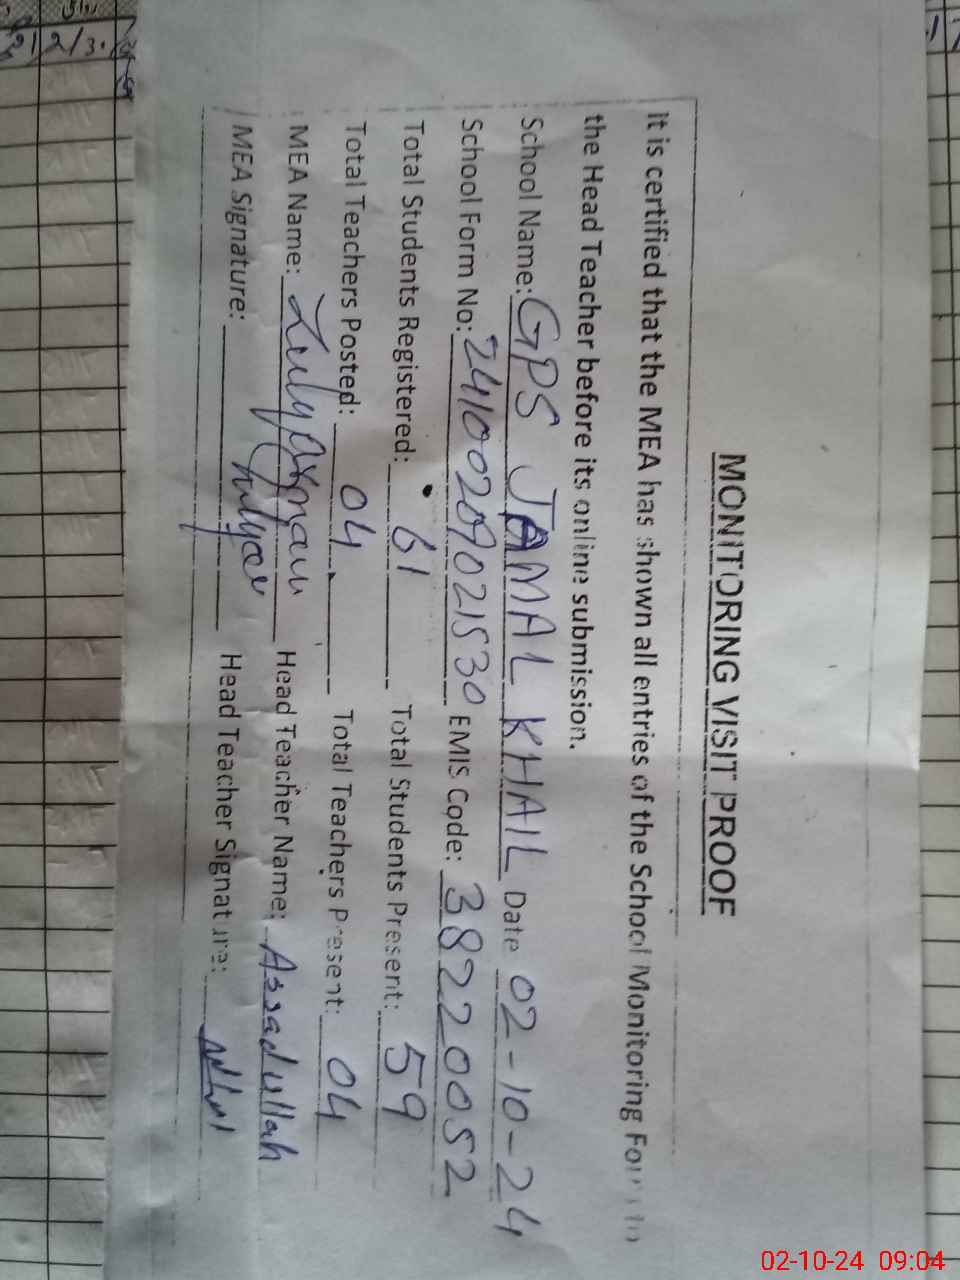 MONITORING VISIT PROOF
it is certified that the MEA has shown all entries of the School Monitoring Form to
the Head Teacher before its online submission.
School Name: GPS JAMAL KHAIL Date 02-10-24
School Form No: 24100209021530 EMIS Code: 38220052
Total Students Registered: 61 Total Students Present: 59
Total Teachers Posted: 04 Total Teachers Present: 04
MEA Name: Head Teacher Name: Assadullah
MEA Signature: Head Teacher Signature:
02-10-24 09:04